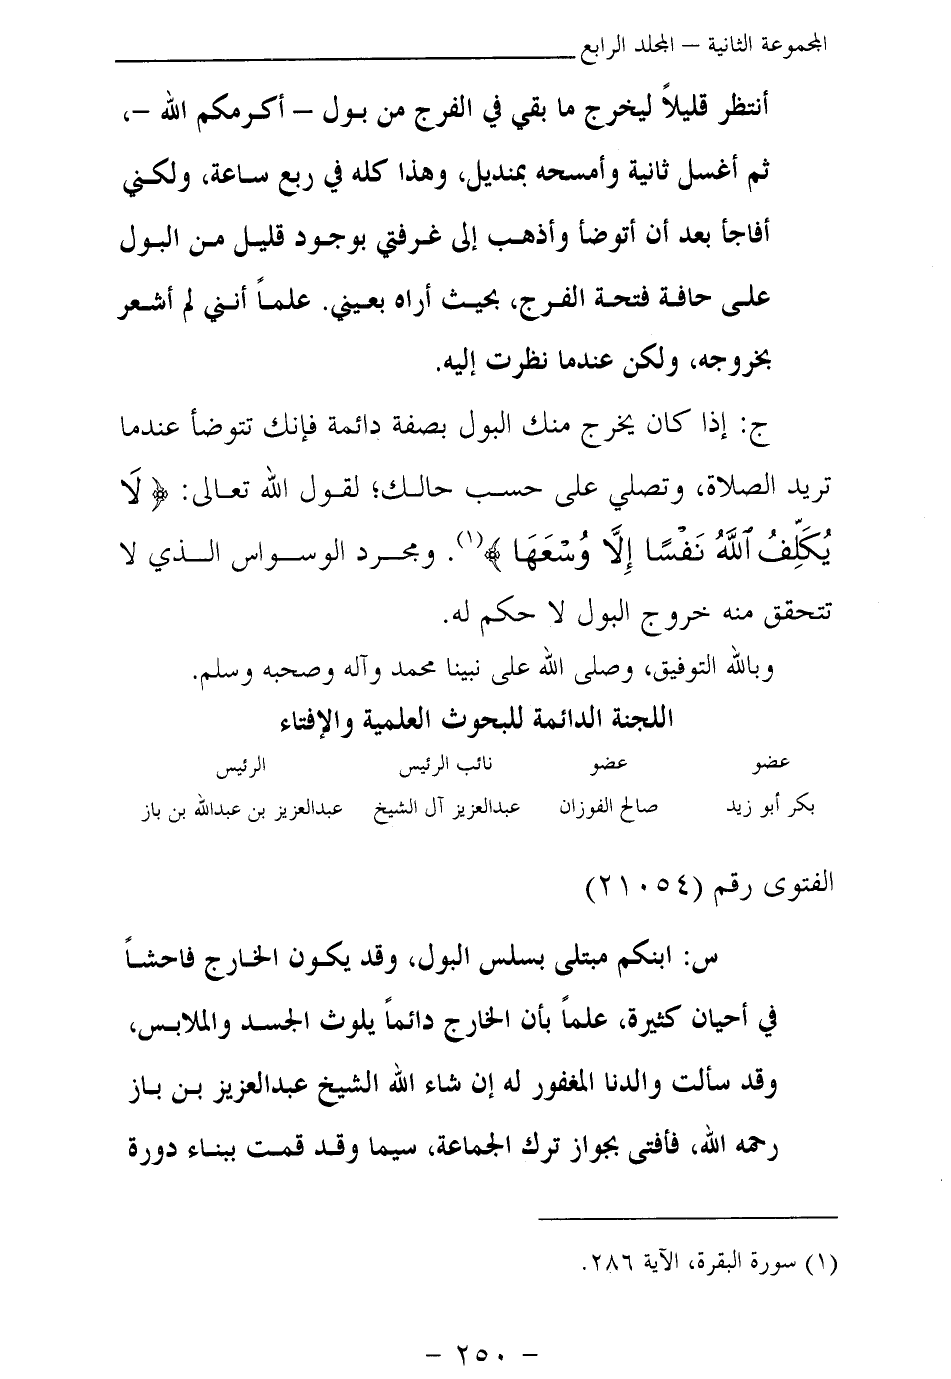 المجموعة الثانية – المجلد الرابع
أنتظر قليلاً ليخرج ما بقي في الفرج من بول – أكرمكم الله –،
ثم أغسل ثانية وأمسحه بمنديل، وهذا كله في ربع ساعة، ولكني
أفاجأ بعد أن أتوضأ وأذهب إلى غرفتي بوجود قليل من البول
على حافة فتحة الفرج، بحيث أراه بعيني. علماً أنني لم أشعر
بخروجه، ولكن عندما نظرت إليه.
ج: إذا كان يخرج منك البول بصفة دائمة فإنك تتوضأ عندما
تريد الصلاة، وتصلي على حسب حالك؛ لقول الله تعالى: ﴿ لَا
يُكَلِّفُ ٱللَّهُ نَفْسًا إِلَّا وُسْعَهَا ﴾(١). ومجرد الوسواس الذي لا
تتحقق منه خروج البول لا حكم له.
وبالله التوفيق، وصلى الله على نبينا محمد وآله وصحبه وسلم.
اللجنة الدائمة للبحوث العلمية والإفتاء
عضو عضو نائب الرئيس الرئيس
بكر أبو زيد صالح الفوزان عبدالعزيز آل الشيخ عبدالعزيز بن عبدالله بن باز
الفتوى رقم (٢١٠٥٤)
س: ابنكم مبتلى بسلس البول، وقد يكون الخارج فاحشاً
في أحيان كثيرة، علماً بأن الخارج دائماً يلوث الجسد والملابس،
وقد سألت والدنا المغفور له إن شاء الله الشيخ عبدالعزيز بن باز
رحمه الله، فأفتى بجواز ترك الجماعة، سيما وقد قمت ببناء دورة
(١) سورة البقرة، الآية ٢٨٦.
– ٢٥٠ –